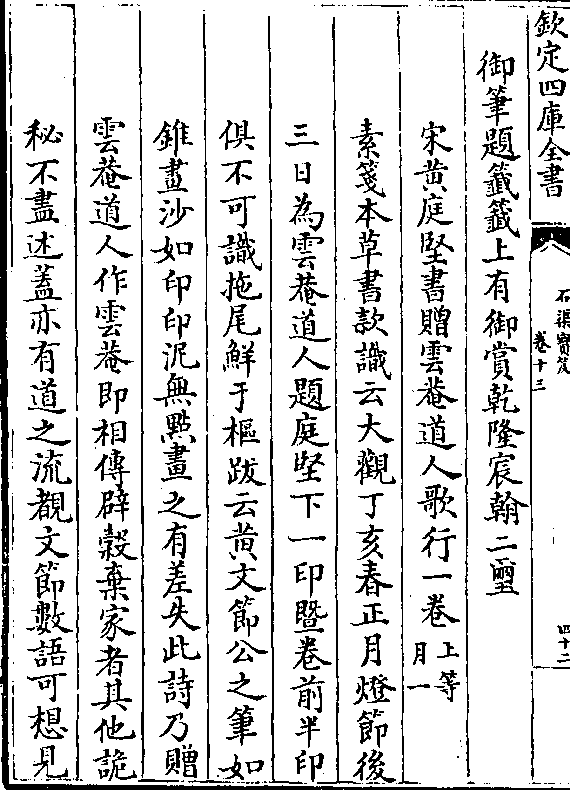 欽定四庫全書
石渠寳笈
卷十三
四十二
御筆題籖籖上有御賞乾隆宸翰二璽
宋黄庭堅書贈雲菴道人歌行一卷上等
月一
素箋本草書款識云大觀丁亥春正月燈節後
三日為雲菴道人題庭堅下一印暨卷前半印
俱不可識拖尾鮮于樞跋云黄文節公之筆如
錐畫沙如印印泥無㸃畫之有差失此詩乃贈
雲菴道人作雲菴即相傳辟榖棄家者其他詭
秘不盡述蓋亦有道之流覩文節數語可想見